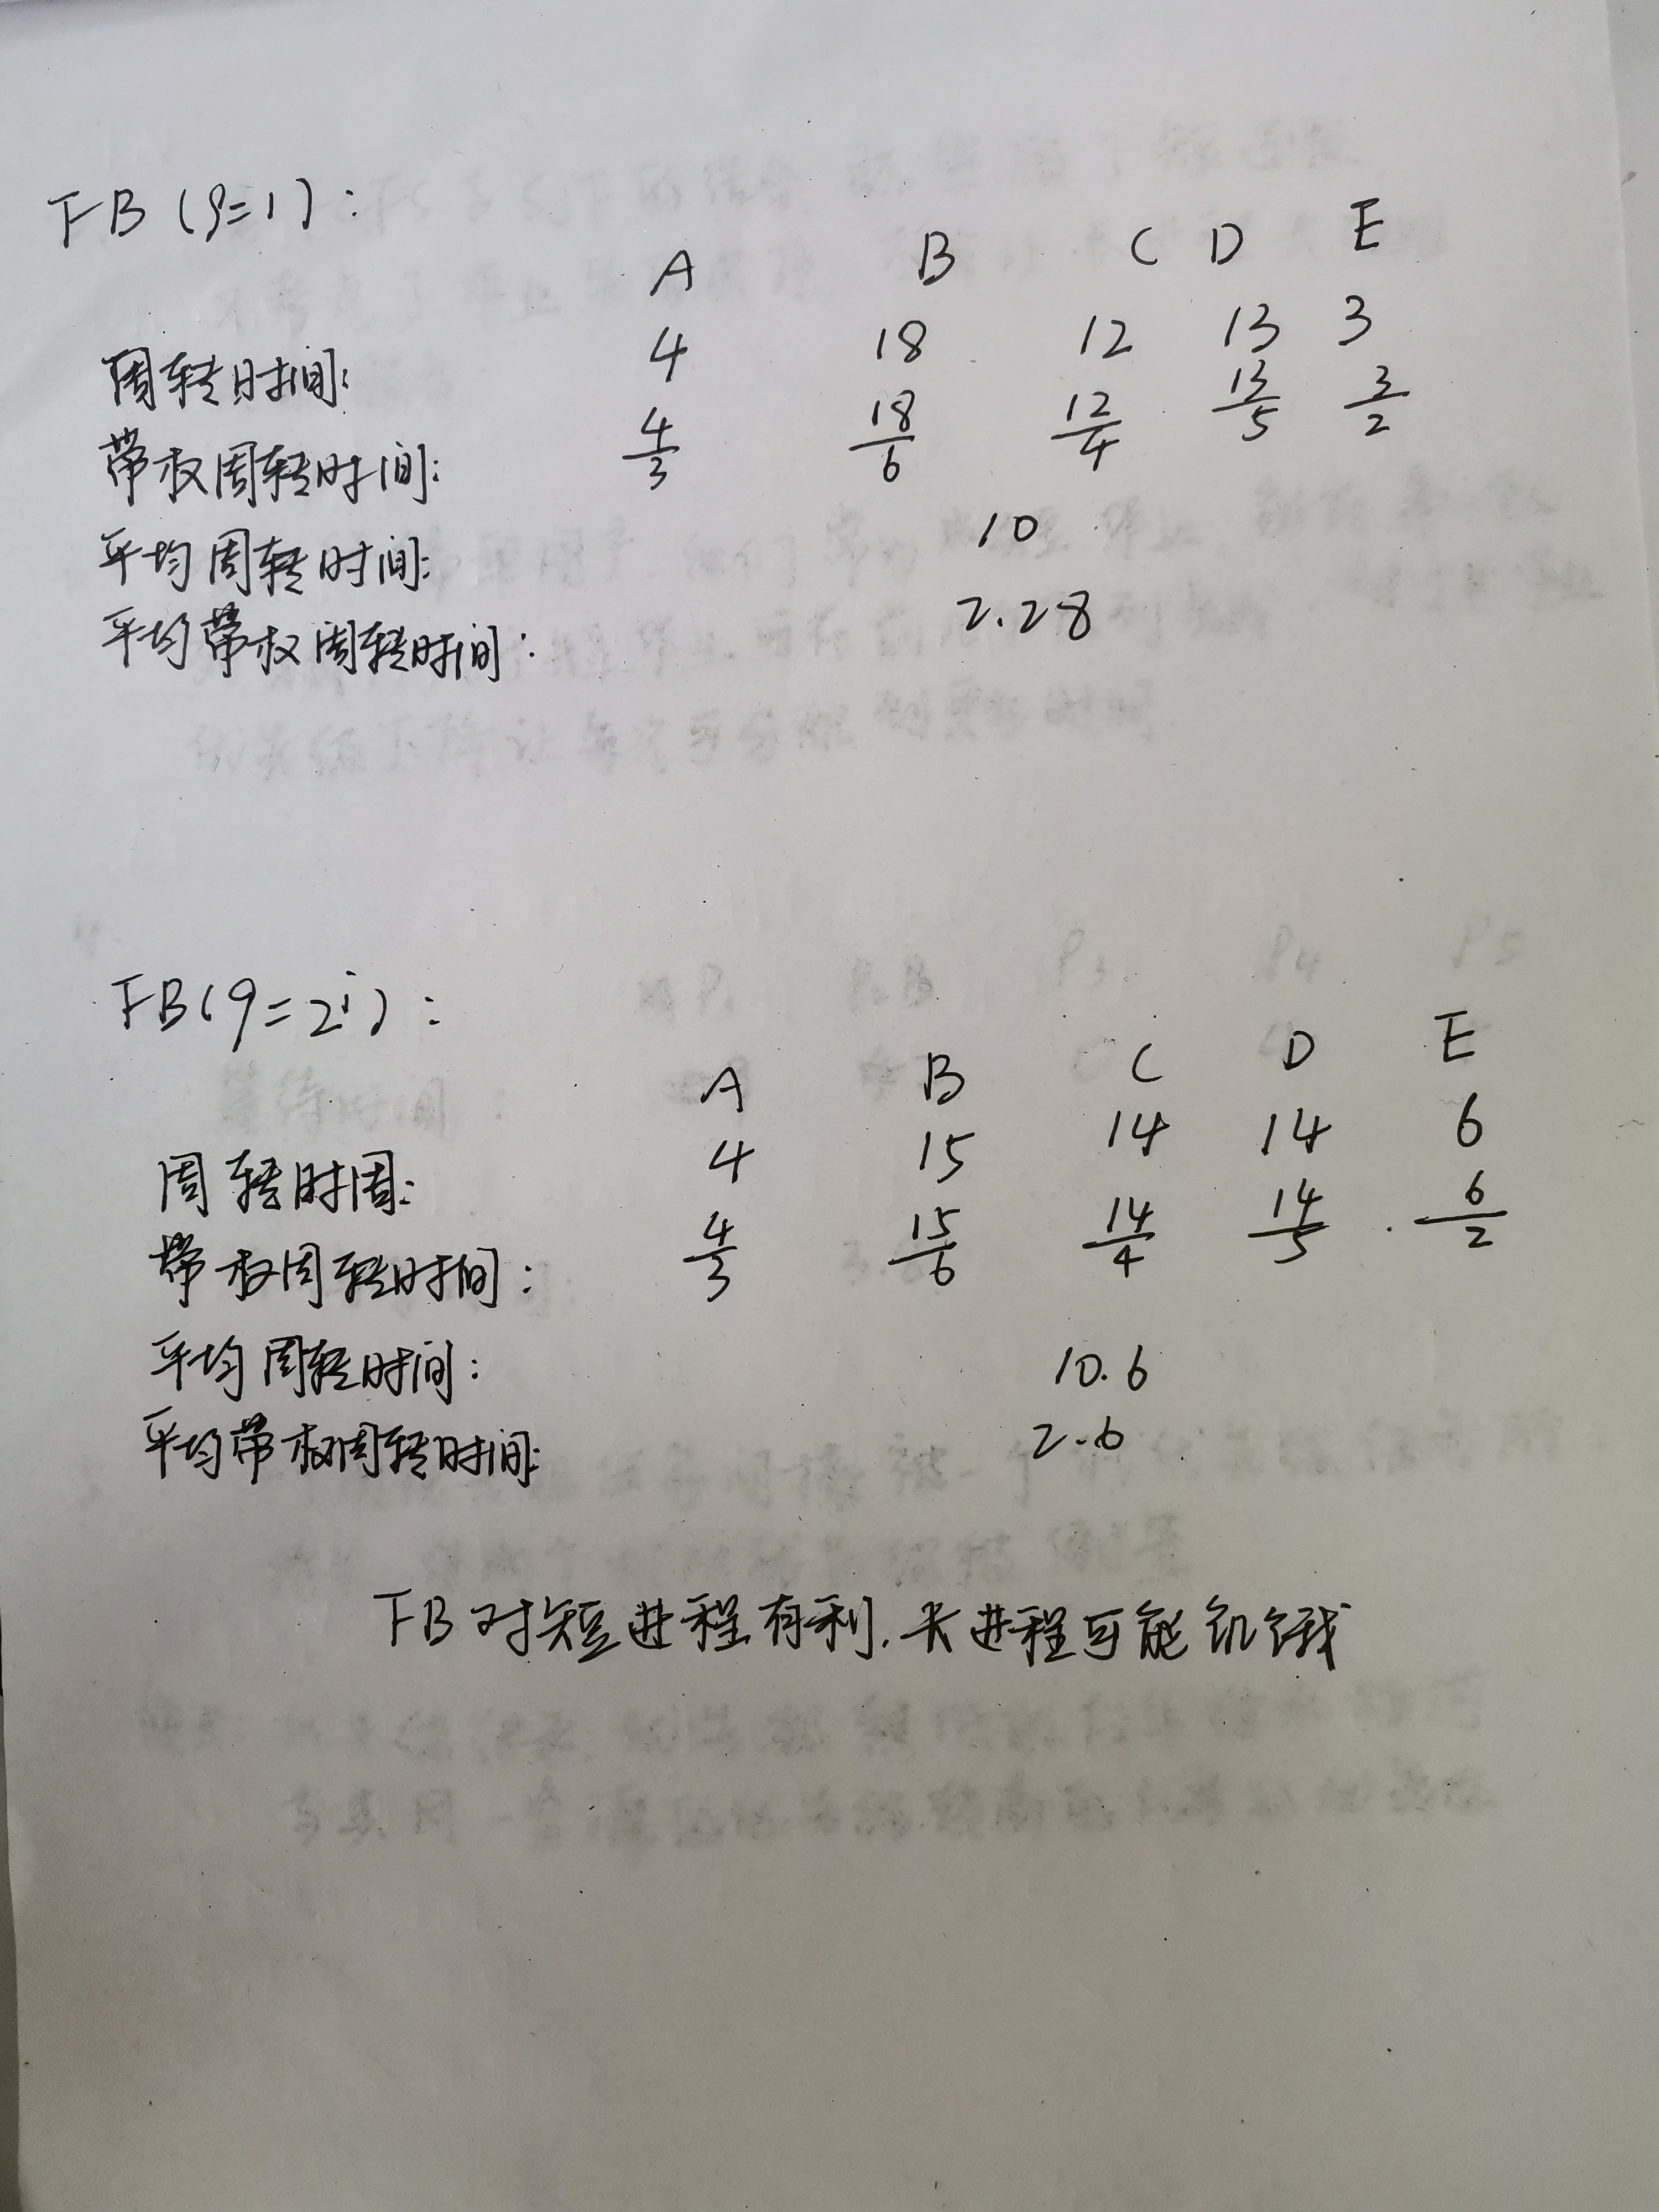 FB(q=1):
A B C D E
周转时间: 4 18 12 13 3
带权周转时间: 4/3 18/6 12/4 13/5 3/2
平均周转时间: 10
平均带权周转时间: 2.28
FB(q=2^i):
A B C D E
周转时周: 4 15 14 14 6
带权周转时间: 4/3 15/6 14/4 14/5 6/2
平均周转时间: 10.6
平均带权周转时间: 2.6
FB对短进程有利.长进程可能饥饿